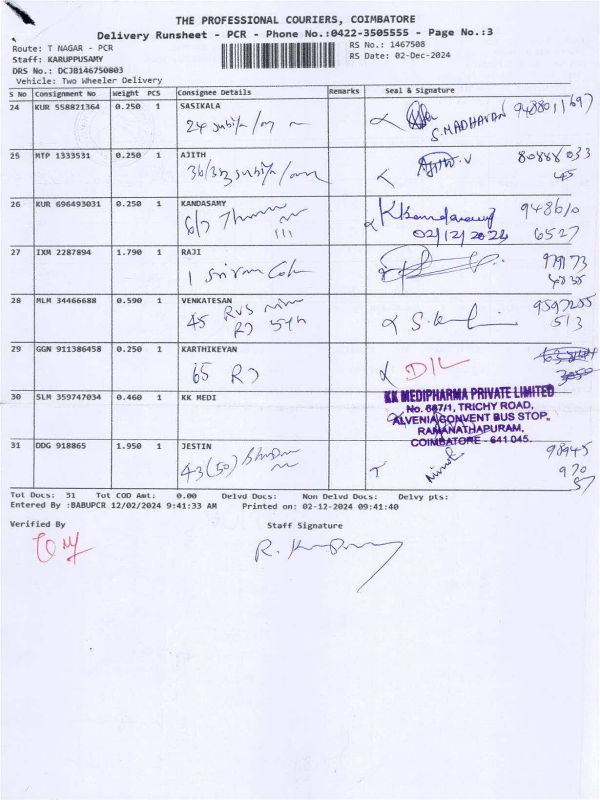 THE PROFESSIONAL COURIERS, COIMBATORE
Delivery Runsheet - PCR - Phone No.:0422-3505555 - Page No.:3
Route: T NAGAR - PCR
RS No.: 1467508
Staff: KARUPPUSAMY
RS Date: 02-Dec-2024
DRS No.: DCJB146750803
Vehicle: Two Wheeler Delivery
S No Consignment No Weight PCS Consignee Details Remarks Seal & Signature
24 KUR 558821364 0.250 1 SASIKALA
S.MADHAVAN 9488011697
25 MTP 1333531 0.250 1 AJITH
36/3
Ajith.V 80888033
45
26 KUR 696493031 0.250 1 KANDASAMY
6/7
948610
02/12/2024 6527
27 IXM 2287894 1.790 1 RAJI
1 Sriram
28 MLM 34466688 0.590 1 VENKATESAN
45 RVS
9597255
513
29 GGN 911386458 0.250 1 KARTHIKEYAN
65
D/L
30 SLM 359747034 0.460 1 KK MEDI
KK MEDIPHARMA PRIVATE LIMITED
No. 687/1, TRICHY ROAD,
ALVENIA CONVENT BUS STOP,
RAMANATHAPURAM,
COIMBATORE - 641 045.
31 DDG 918865 1.950 1 JESTIN
43(50)
98945
970
57
Tot Docs: 51 Tot COD Amt: 0.00 Delvd Docs: Non Delvd Docs: Delvy pts:
Entered By :BABUPCR 12/02/2024 9:41:33 AM Printed on: 02-12-2024 09:41:40
Verified By
Staff Signature